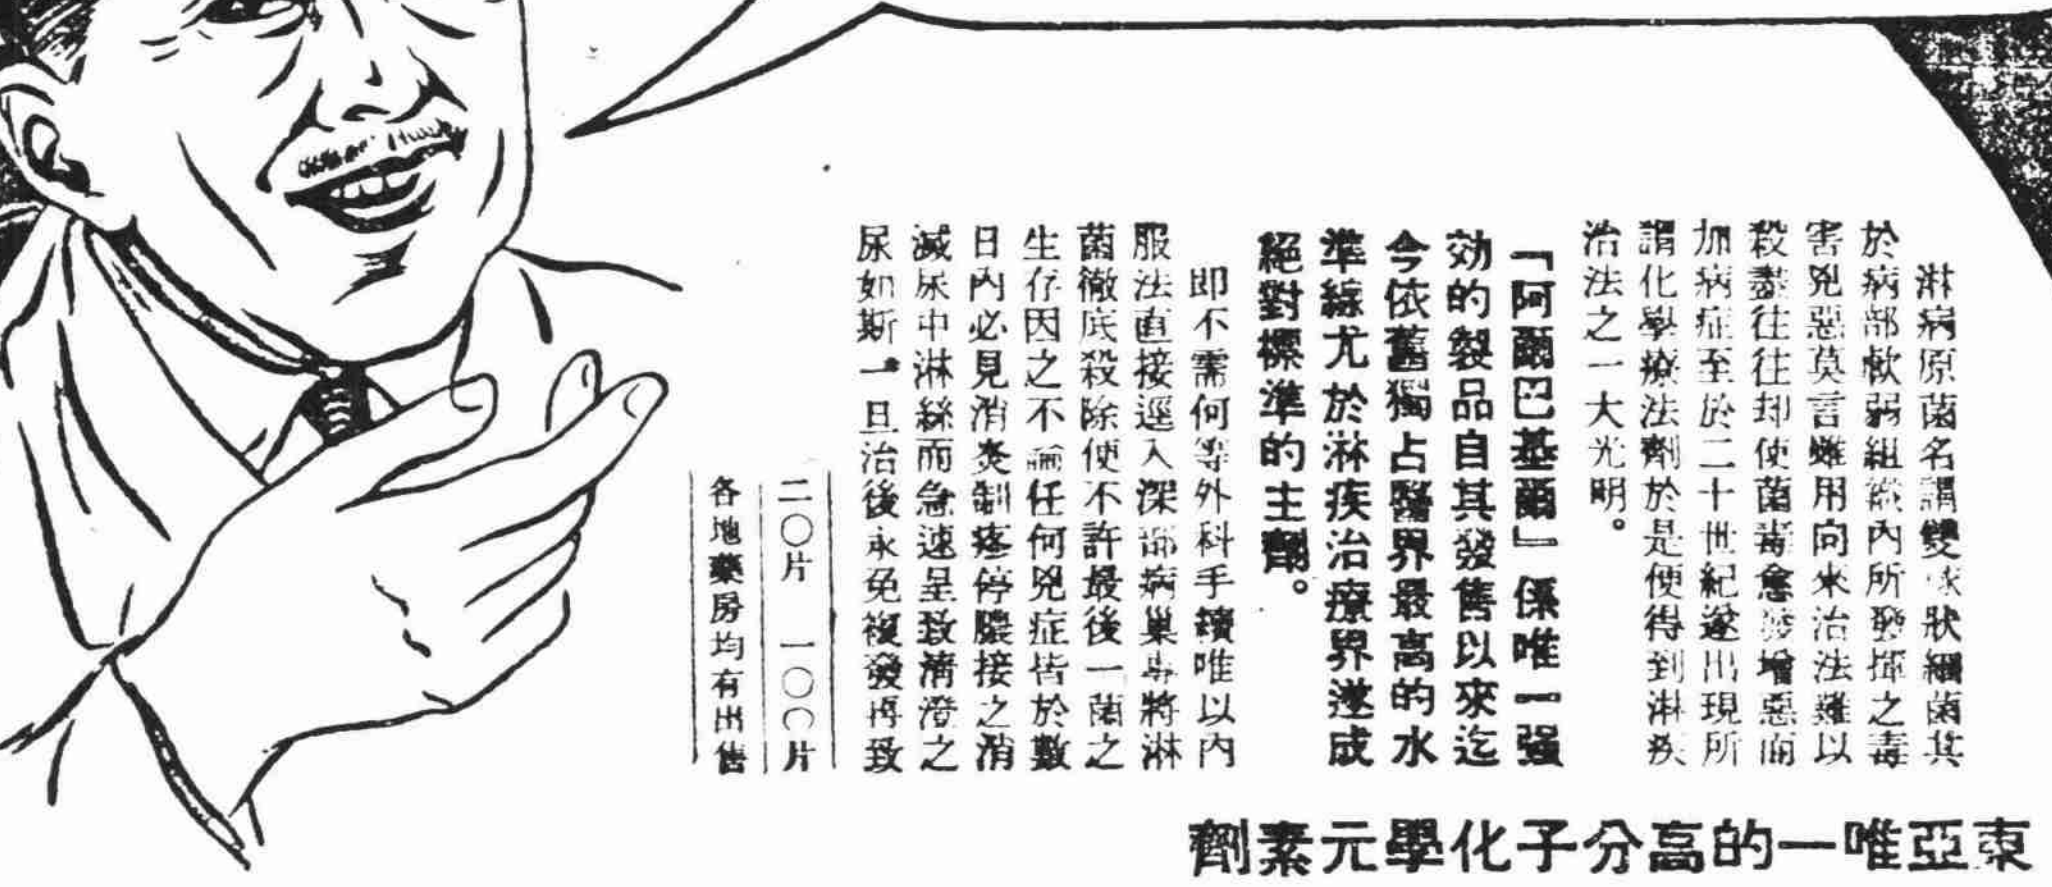 淋病原菌名謂雙球狀細菌其
於病部軟弱組織內所發揮之毒
害兇惡莫言雖用向來治法難以
殺盡往往却使菌毒愈發增惡而
加病症至於二十世紀遂出現所
謂化學療法劑於是便得到淋疾
治法之一大光明。
「阿爾巴基爾」係唯一强
効的製品自其發售以來迄
今依舊獨占醫界最高的水
準線尤於淋疾治療界遂成
絕對標準的主劑。
即不需何等外科手續唯以內
服法直接逕入深部病巢專將淋
菌徹底殺除便不許最後一菌之
生存因之不論任何兇症皆於數
日內必見消炎制疼停膿接之消
滅尿中淋絲而急速呈致清澄之
尿如斯一旦治後永免複發再致
二〇片 一〇〇片
各地藥房均有出售
東亞唯一的高分子化學元素劑